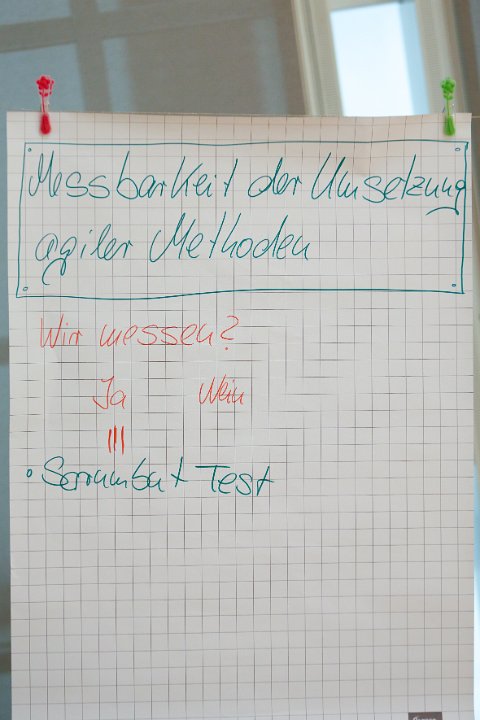 Messbarkeit der Umsetzung
agiler Methoden
Wir messen?
Ja Nein
|||
• Scrumbut Test